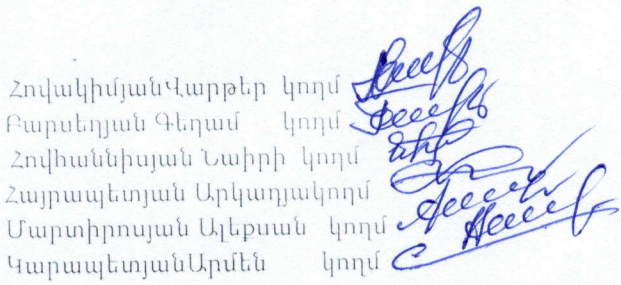 ՀովակիմյանՎարթեր կողմ
Բարսեղյան Գեղամ կողմ
Հովհաննիսյան Նաիրի կողմ
Հայրապետյան Արկադյակողմ
Մարտիրոսյան Ալեքսան կողմ
ԿարապետյանԱրմեն կողմ